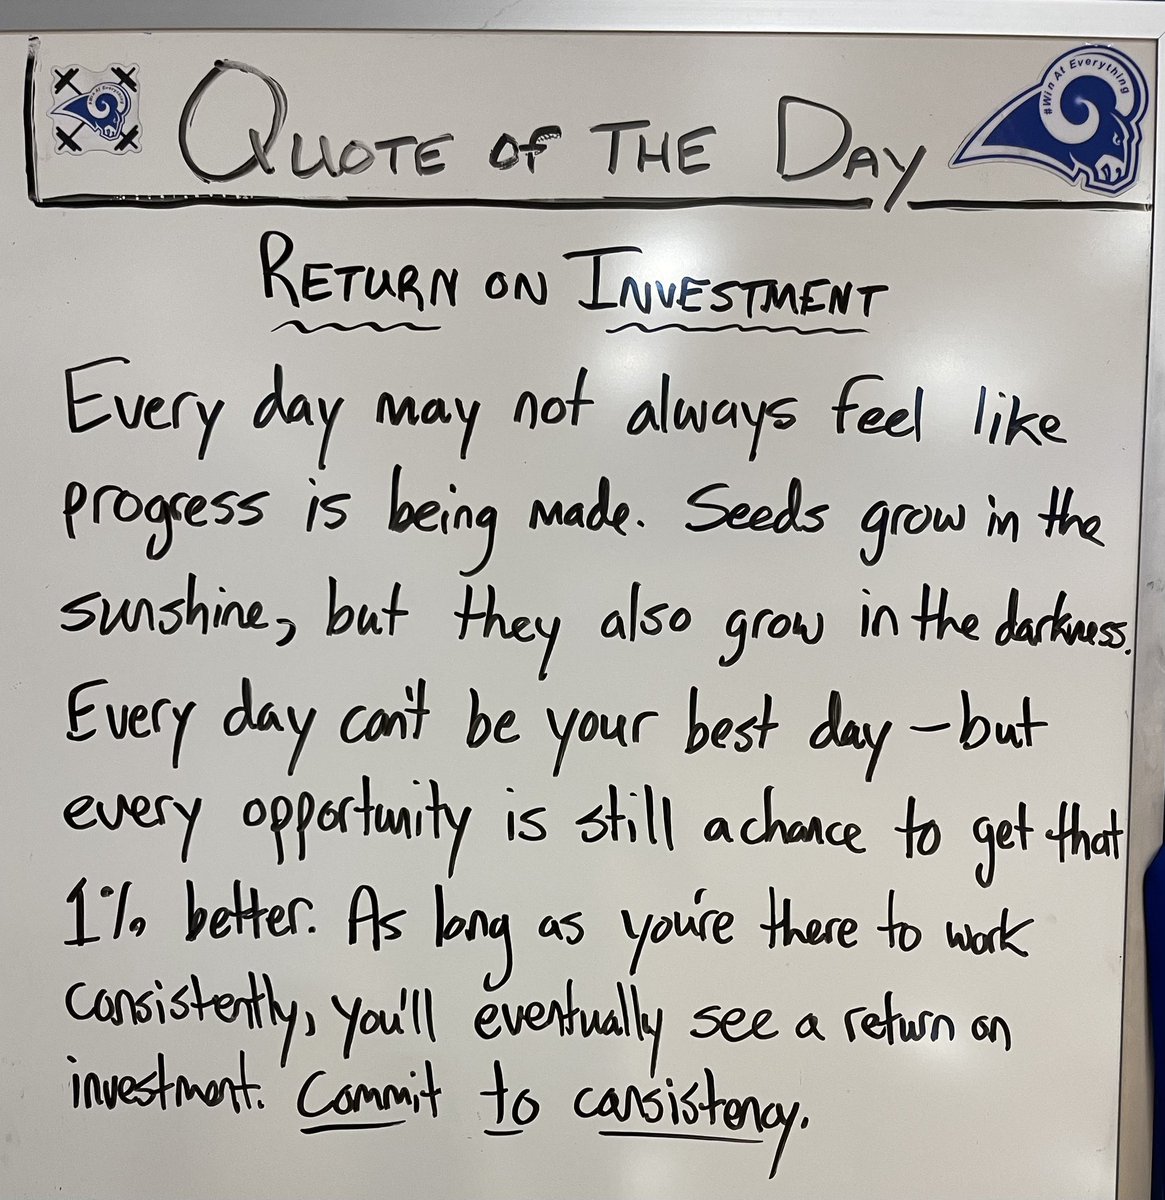 #Win At Everything
QUOTE of THE DAY
#Win At Everything
RETURN ON INVESTMENT
Every day may not always feel like
progress is being made. Seeds grow in the
sunshine, but they also grow in the darkness.
Every day can't be your best day - but
every opportunity is still a chance to get that
1% better. As long as you're there to work
consistently, you'll eventually see a return on
investment. Commit to consistency.